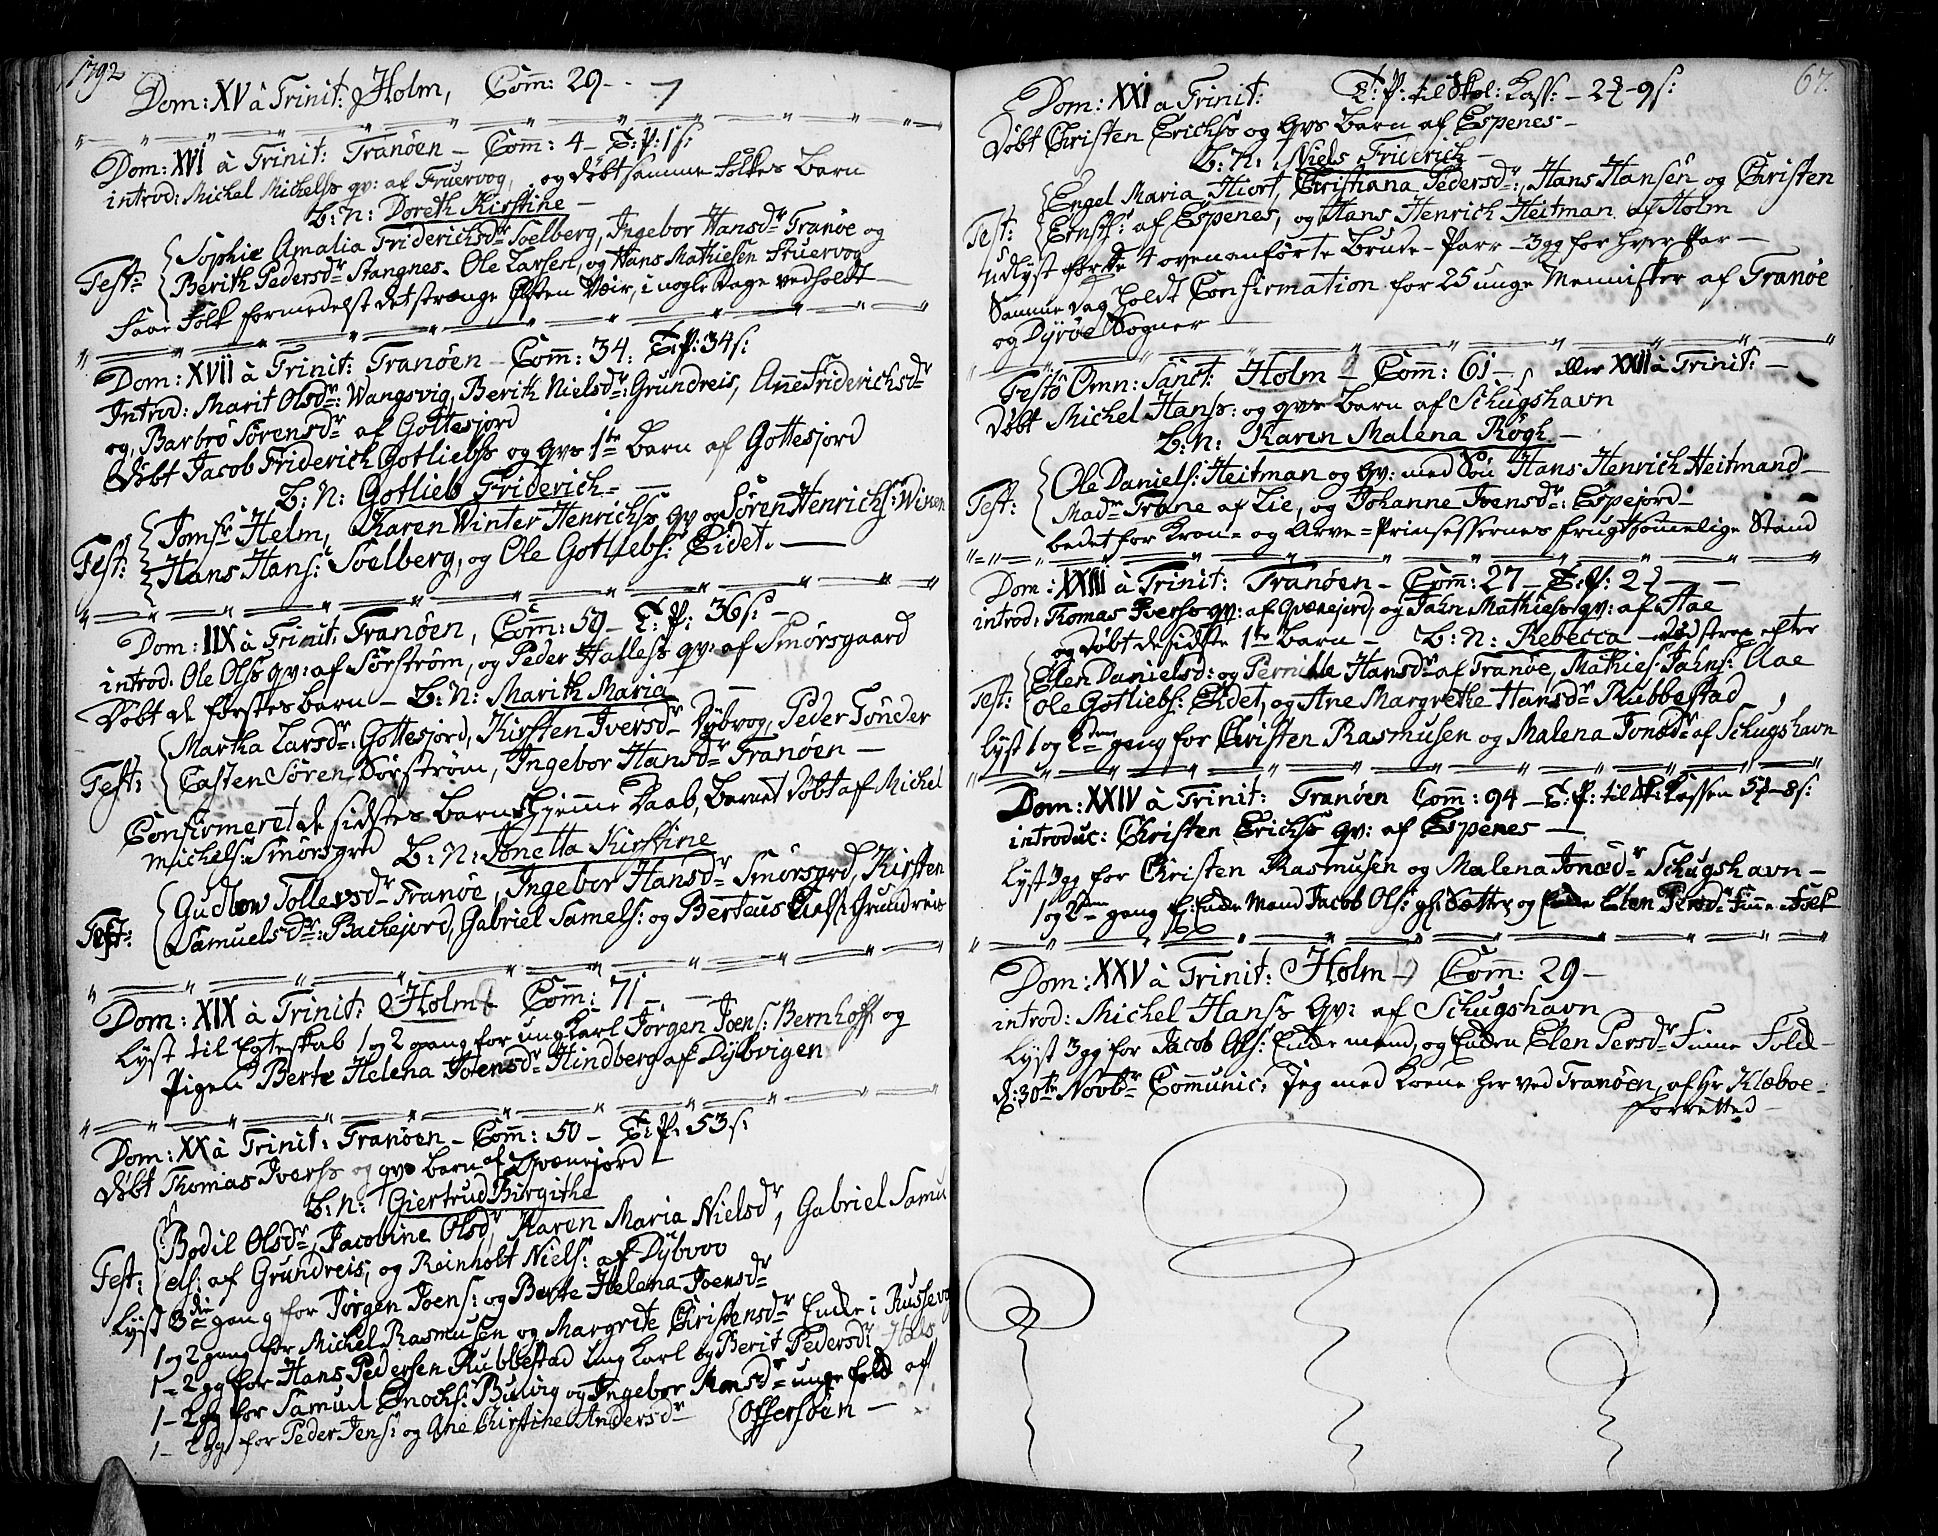 1792
Dom: XV à Trinit: Holm, Com̅: 29 -
Dom: XVI à Trinit: Tranøen - Com̅: 4 - T: P: 1 s:
introd: Michel Michelss qv: af Fruervog, og døbt samme Folkes Barn
B: N: Doreth Kirstine -
Test: Sophie Amalia Friderichsdr Soelberg, Ingebor Hansdr Tranøe og
Berith Pedersdr Stangnes. Ole Larsen, og Hans Mathiesen
faae Folk formedelst det strænge Østen Veir, i nogle Dage vedholdt
Dom: XVII à Trinit: Tranøen - Com̅: 34: T: P: 34 s:
Introd: Marit Olsdr: Wangsvig, Berith Nielsdr: Grundreis, Anne Friderichsdr
og, Barbro Sørensdr af Gottesjord
Døbt Jacob Friderich Gotliebss og qvs 1te Barn af Gottesjord
B: N: Gotlieb Friderich -
Test: Jomfr Helm, Karen Winter Henrichss qv og Søren Henrichs:
Hans Hans: Soelberg, og Ole Gotliebs: Eidet.
Dom: IIX à Trinit: Tranøen, Com̅: 59 - T: P: 36 s: -
introd: Ole Olss qv: af Sørstrøm, og Peder Halless qv: af Smørsgaard
Døbt de førstes barn - B: N: Marith Maria
Test: Martha Larsdr: Gottesjord, Kirsten Iversdr Dybvog, Peder Tønder
Casten Søren: Sørstrøm, Ingebor Hansdr Tranøen -
Confirmeret de sidstes barns hjemme Daab, Barnet døbt af Michel
Michels: Smørsgrd B: N: Jonetta Kirstine
Test: Gudlow Tollevsdr Tranøe, Ingebor Hansdr Smørsgrd, Kirsten
Samuelsdr: Bachejord, Gabriel Samels: og Berteus Grundreis
Dom: XIX à Trinit: Holm Com̅: 71 -
Lyst til Egteskab 1 og 2 gang for ung Karl Jørgen Joens: Bernhoft og
Pigen Berte Helena Joensdr Hindberg af Dybvigen
Dom: XX à Trinit: Tranøen - Com̅: 50 - T: P: 53 s:
døbt Thomas Iverss og qvs barn af Qvænejord
B: N: Giertrud Birgithe
Test: Bodil Olsdr, Jacobine Olsdr, Karen Maria Nielsdr, Gabriel Samu
els: af Grundreis, og Reinholt Niels: af Dybvoo
Lyst 3die gang for Jørgen Joens: og Berte Helena Joensdr
1 og 2 gang for Michel Rasmusen og Margrete Christensdr Enke i Russevog
1 - 2 gg for Hans Pedersen Rubbestad ung Karl og Berit Pedersdr
1 - 2 gg for Samuel Enochs: og Ingebor Monsdr unge folk af
1 - 2 gg for Peder Jens: og Ane Chirstine Andersdr Offersøen -
67.
Dom: XXI à Trinit: T: P: til Skol: Kass: - 2 - 9 s:
Døbt Christen Erichss og qvs barn af Espenes -
B: N: Niels Friderich -
Test: Engel Maria Hiort, Christiana Pedersdr:, Hans Hansen og Christen
Ernsth: af Espenes, og Hans Henrich Heitman af Holm
udlyst for de 4 ovenanførte Brude-Parr - 3 gg for hver Par -
Samme dag holdt Confirmation for 25 unge Mennisker af Tranøe
og Dyrøe Sogner
Festo Omn: Sanct: Holm - Com̅: 61 - eller XXII à Trinit: -
døbt Michel Hanss: og qvs barn af Schugshavn
B: N: Karen Malena Røgh -
Test: Ole Daniels: Heitman og qv: med Søn Hans Henrich Heitmand -
Madr Trane af Lie, og Johanne Joensdr: Espejord -
bedet for Kron- og Arve-Prinsessernes frugtsommelige Stand
Dom: XXIII à Trinit: Tranøen - Com̅: 27 - T: P: 2
introd: Thomas Iverss qv: af Qvænejord, og Jahn Mathiess qv: af Aae
og døbt de sidste 1te barn - B: N: Rebecca - død strax efter
Test: Elen Danielsd: og Pernille Hansdr af Tranøe, Mathies Jahns: Aae
Ole Gotliebs: Eidet, og Ane Margrethe Hansdr Rubbestad
Lyst 1 og 2den gang for Christen Rasmusen og Malena Jonædr af Schugshavn
Dom: XXIV à Trinit: Tranøen Com̅: 94 - T: P: til Sk: Kassen 5 - 8 s:
introduc: Christen Erichss qv: af Espenes -
Lyst 3 gg for Christen Rasmusen og Malena Jonædr Schugshavn -
1 og 2den gang for Enke Mand Jacob Ols: og Enke Elen Persdr Finne-Folk
Dom: XXV à Trinit: Holm - Com̅: 29 -
introd: Michel Hanss qv: af Schugshavn
Lyst 3 gg for Jacob Ols: Enke mand, og Enken Elen Persdr Finne Folk -
d: 30te Novbr Communic: Jeg med Kone her ved Tranøen, af Hr Klæboe -
forretted -